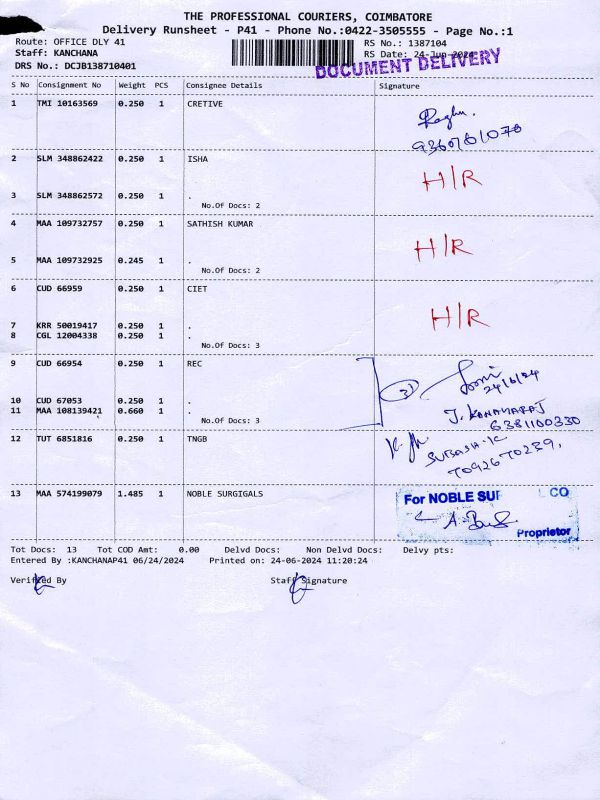 THE PROFESSIONAL COURIERS, COIMBATORE
Delivery Runsheet - P41 - Phone No.:0422-3505555 - Page No.:1
Route: OFFICE DLY 41
RS No.: 1387104
Staff: KANCHANA
RS Date: 24-Jun-2024
DRS No.: DCJB138710401
DOCUMENT DELIVERY
S No Consignment No Weight PCS Consignee Details Signature
1 TMI 10163569 0.250 1 CRETIVE
Raghu
2 SLM 348862422 0.250 1 ISHA
H/R
3 SLM 348862572 0.250 1 .
No.Of Docs: 2
4 MAA 109732757 0.250 1 SATHISH KUMAR
H/R
5 MAA 109732925 0.245 1 .
No.Of Docs: 2
6 CUD 66959 0.250 1 CIET
H/R
7 KRR 50019417 0.250 1 .
8 CGL 12004338 0.250 1 .
No.Of Docs: 3
9 CUD 66954 0.250 1 REC
3
24/6/24
10 CUD 67053 0.250 1 .
11 MAA 108139421 0.660 1 .
J. KANAHARAJ
6381100330
No.Of Docs: 3
12 TUT 6851816 0.250 1 TNGB
SUBASH.K
7092670289,
13 MAA 574199079 1.485 1 NOBLE SURGIGALS
For NOBLE SUR CO
Proprietor
Tot Docs: 13 Tot COD Amt: 0.00 Delvd Docs: Non Delvd Docs: Delvy pts:
Entered By :KANCHANAP41 06/24/2024 Printed on: 24-06-2024 11:20:24
Verified By Staff Signature